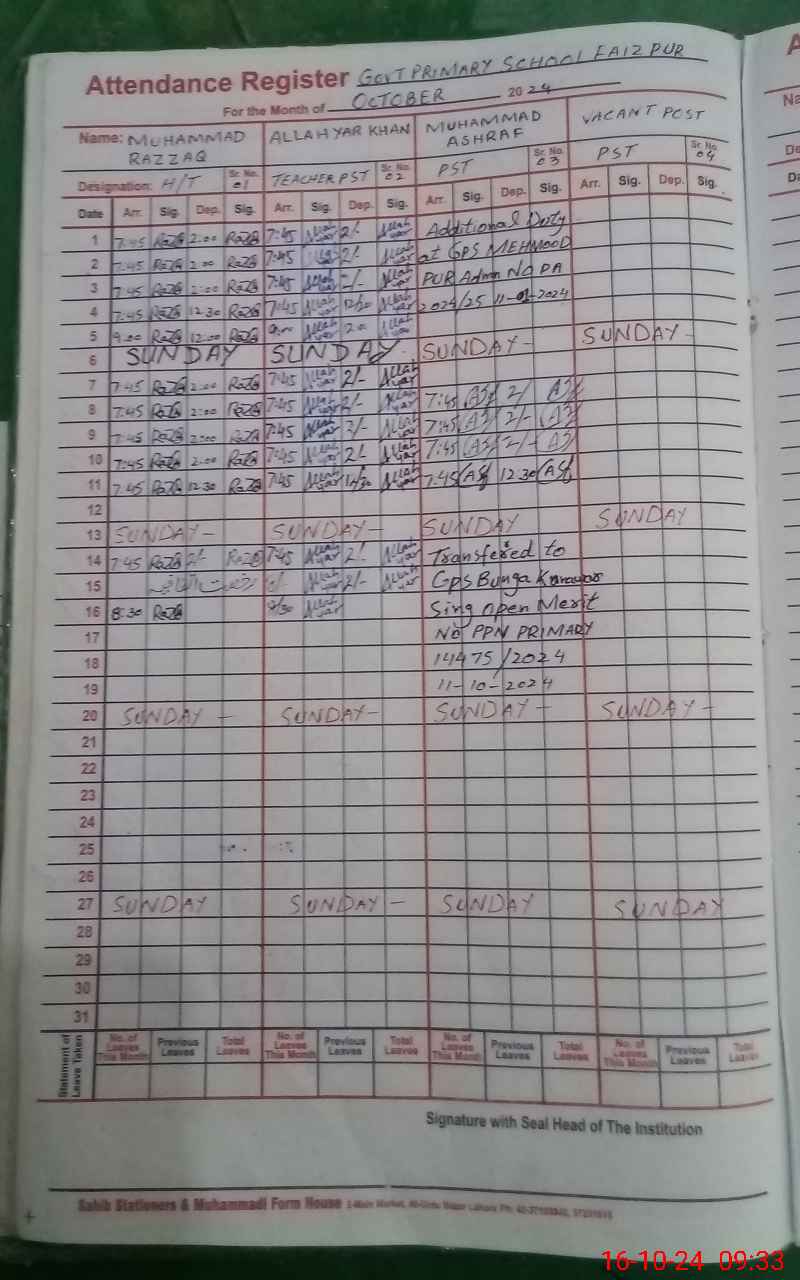 Attendance Register GOVT PRIMARY SCHOOL FAIZ PUR
For the Month of OCTOBER 2024
Name: MUHAMMAD RAZZAQ ALLAH YAR KHAN MUHAMMAD ASHRAF VACANT POST
Designation: H/T Sr. No. 01 TEACHER PST Sr. No. 02 PST Sr. No. 03 PST Sr. No. 04
Date Arr. Sig. Dep. Sig. Arr. Sig. Dep. Sig. Arr. Sig. Dep. Sig. Arr. Sig. Dep. Sig.
1 7:45 Razaq 2:00 Razaq 7:45 Allah yar 2/- Allah yar Additional Duty
2 7:45 Razaq 2:00 Razaq 7:45 Allah yar 2/- Allah yar at GPS MEHMOOD
3 7:45 Razaq 2:00 Razaq 7:45 Allah yar 2/- Allah yar PUR Admn NO PA
4 7:45 Razaq 12:30 Razaq 7:45 Allah yar 12/30 Allah yar 2024/25 11-01-2024
5 9:00 Razaq 12:00 Razaq 9:00 Allah yar Allah yar
6 SUNDAY SUNDAY SUNDAY - SUNDAY -
7 7:45 Razaq 2:00 Razaq 7:45 Allah yar 2/- Allah yar
8 7:45 Razaq 2:00 Razaq 7:45 Allah yar 2/- Allah yar 7:45 2/
9 7:45 Razaq 2:00 Razaq 7:45 Allah yar 2/- Allah yar 7:45 2/-
10 7:45 Razaq 2:00 Razaq 7:45 Allah yar 2/- Allah yar 7:45 2/-
11 7:45 Razaq 12:30 Razaq 7:45 Allah yar 12/30 Allah yar 7:45 12:30
12
13 SUNDAY - SUNDAY - SUNDAY SUNDAY
14 7:45 Razaq 2/- Razaq 7:45 Allah yar 2/- Allah yar Transfered to
15 رخصت اتفاقیہ Allah yar 2/- Allah yar Gps Bunga
16 8:30 Razaq Allah yar Sing open Merit
17 NO PPN PRIMARY
18 14475/2024
19 11-10-2024
20 SUNDAY - SUNDAY - SUNDAY - SUNDAY -
21
22
23
24
25
26
27 SUNDAY SUNDAY - SUNDAY SUNDAY
28
29
30
31
Statement of Leave Taken No. of Leaves This Month Previous Leaves Total Leaves No. of Leaves This Month Previous Leaves Total Leaves No. of Leaves This Month Previous Leaves Total Leaves No. of Leaves This Month Previous Leaves Total Leaves
Signature with Seal Head of The Institution
Sahib Stationers & Muhammadi Form House
16-10-24 09:33